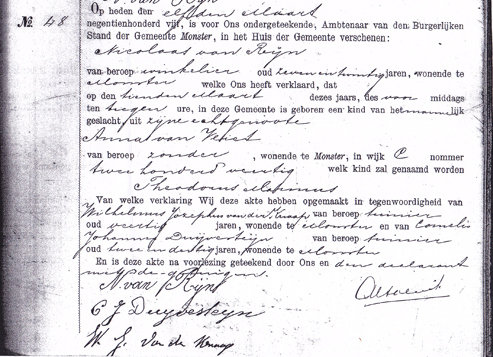 N. van Rijn
№ 48
Op heden den elfden Maart
negentienhonderd vijf, is voor Ons ondergeteekende, Ambtenaar van den Burgerlijken
Stand der Gemeente Monster, in het Huis der Gemeente verschenen:
Nicolaas van Rijn
van beroep winkelier oud zeven en twintig jaren, wonende te
Monster welke Ons heeft verklaard, dat
op den tienden Maart dezes jaars, des voor middags
ten negen ure, in deze Gemeente is geboren een kind van het mannelijk
geslacht, uit zijne echtgenoote
Anna van
van beroep zonder, wonende te Monster, in wijk C nommer
twee honderd veertig welk kind zal genaamd worden
Theodorus Marinus
Van welke verklaring Wij deze akte hebben opgemaakt in tegenwoordigheid van
Wilhelmus Josephus van der Knaap van beroep tuinier
oud veertig jaren, wonende te Monster en van Cornelis
Johannes Duijvesteijn van beroep tuinier
oud twee en dertig jaren, wonende te Monster
En is deze akte na voorlezing geteekend door Ons en den declarant
met de getuigen.
N. van Rijn
C J Duyvesteyn
W. J. Van der Knaap